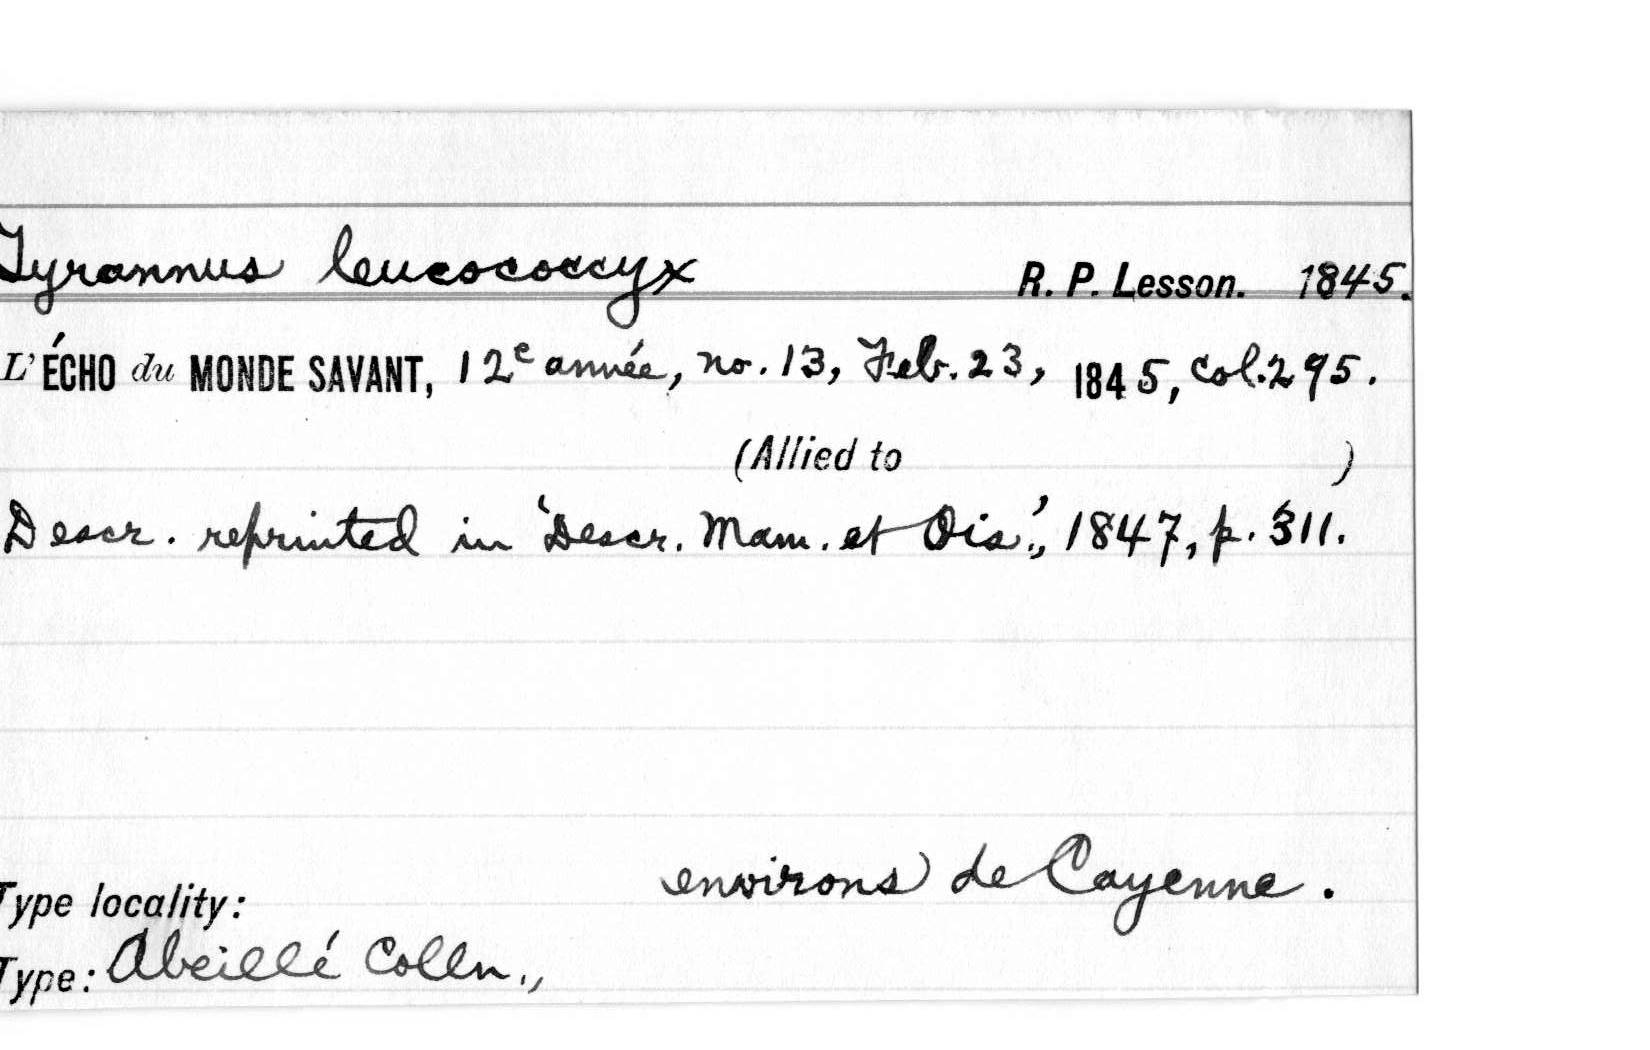 Tyrannus leucococcyx R. P. Lesson. 1845.
L'ÉCHO du MONDE SAVANT, 12e année, no. 13, Feb. 23, 1845, col. 295.
(Allied to )
Descr. reprinted in 'Descr. Mam. et Ois.', 1847, p. 311.
Type locality: environs de Cayenne.
Type: Abeillé Colln.,